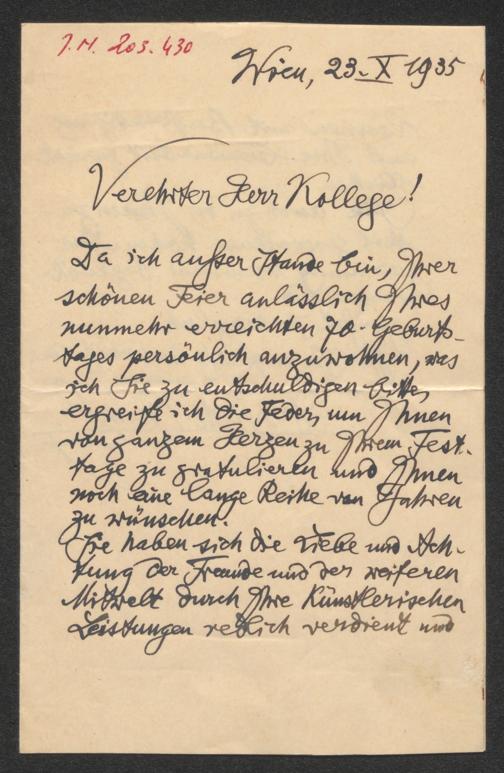 J.N. 203.430
Wien, 23. X 1935
Verehrter Herr Kollege!
Da ich außer Stande bin, Ihrer
schönen Feier anlässlich Ihres
nunmehr erreichten 70. Geburts-
tages persönlich anzuwohnen, was
ich Sie zu entschuldigen bitte,
ergreife ich die Feder, um Ihnen
von ganzem Herzen zu Ihrem Fest-
tage zu gratulieren und Ihnen
noch eine lange Reihe von Jahren
zu wünschen.
Sie haben sich die Liebe und Ach-
tung der Freunde und der weiteren
Mitwelt durch Ihre Künstlerischen
Leistungen redlich verdient und